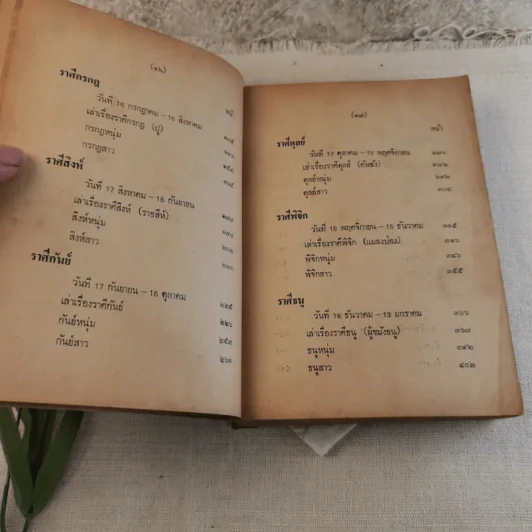 (๑๖)
หน้า
ราศีกรกฎ
วันที่ 16 กรกฎาคม – 16 สิงหาคม
เล่าเรื่องราศีกรกฎ (ปู)
กรกฎหนุ่ม
กรกฎสาว
ราศีสิงห์
วันที่ 17 สิงหาคม – 16 กันยายน
เล่าเรื่องราศีสิงห์ (ราชสีห์)
สิงห์หนุ่ม
สิงห์สาว
ราศีกันย์
วันที่ 17 กันยายน – 16 ตุลาคม ๒๒๕
เล่าเรื่องราศีกันย์ ๒๒๖
กันย์หนุ่ม ๒๕๓
กันย์สาว ๒๖๐
(๑๗)
หน้า
ราศีตุลย์
วันที่ 17 ตุลาคม – 16 พฤศจิกายน
เล่าเรื่องราศีตุลย์ (คันชั่ง)
ตุลย์หนุ่ม
ตุลย์สาว ๓๐๔
ราศีพิจิก
วันที่ 16 พฤศจิกายน – 15 ธันวาคม ๓๑๕
เล่าเรื่องราศีพิจิก (แมลงป่อง) ๓๑๖
พิจิกหนุ่ม ๓๔๖
พิจิกสาว ๓๕๕
ราศีธนู
วันที่ 16 ธันวาคม – 13 มกราคม ๓๖๖
เล่าเรื่องราศีธนู (ผู้ขมังธนู) ๓๖๗
ธนูหนุ่ม ๓๙๒
ธนูสาว ๔๐๒